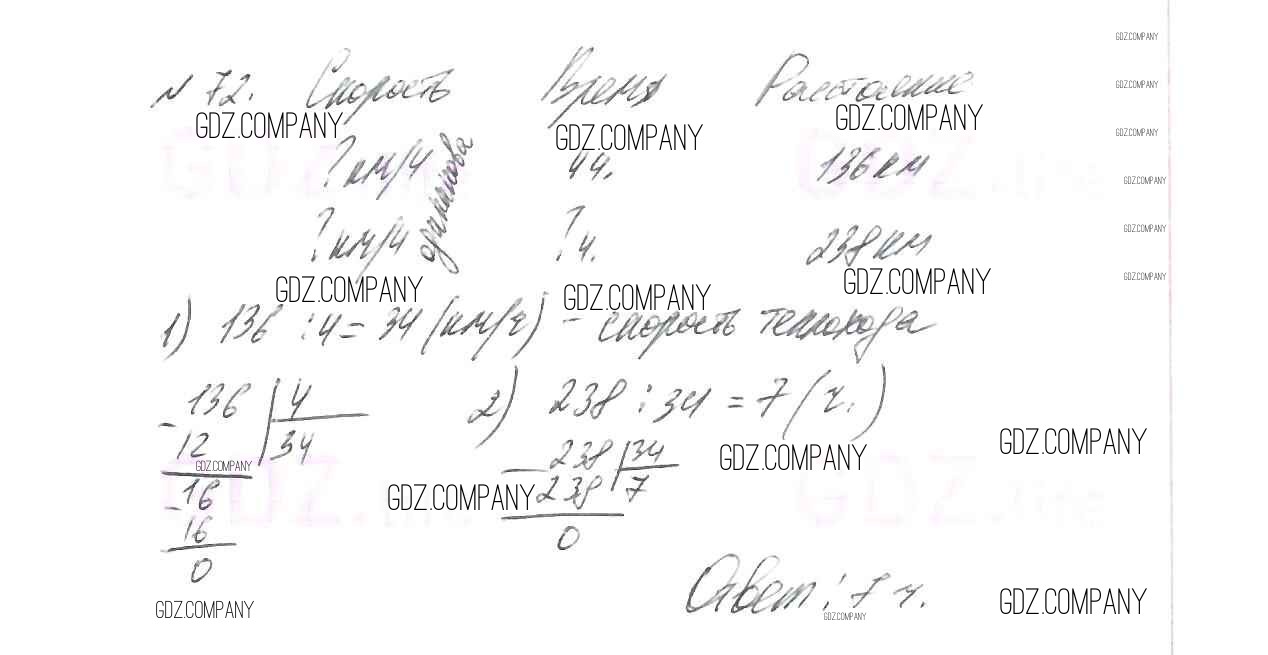 GDZ.COMPANY
№ 72. Скорость Время Расстояние
GDZ.COMPANY GDZ.COMPANY GDZ.COMPANY
GDZ.COMPANY
GDZ.COMPANY
? км/ч 4ч. 136 км
одинакова
GDZ.COMPANY
? км/ч ? ч. 238 км
GDZ.COMPANY
GDZ.COMPANY GDZ.COMPANY GDZ.COMPANY
GDZ.COMPANY
1) 136 : 4 = 34 (км/ч) - скорость теплохода
136 4 2) 238 : 34 = 7 (ч.)
12 34
GDZ.COMPANY
GDZ.COMPANY GDZ.COMPANY
238 34
16 GDZ.COMPANY 238 7
16 0
0
Ответ: 7 ч.
GDZ.COMPANY GDZ.COMPANY GDZ.COMPANY